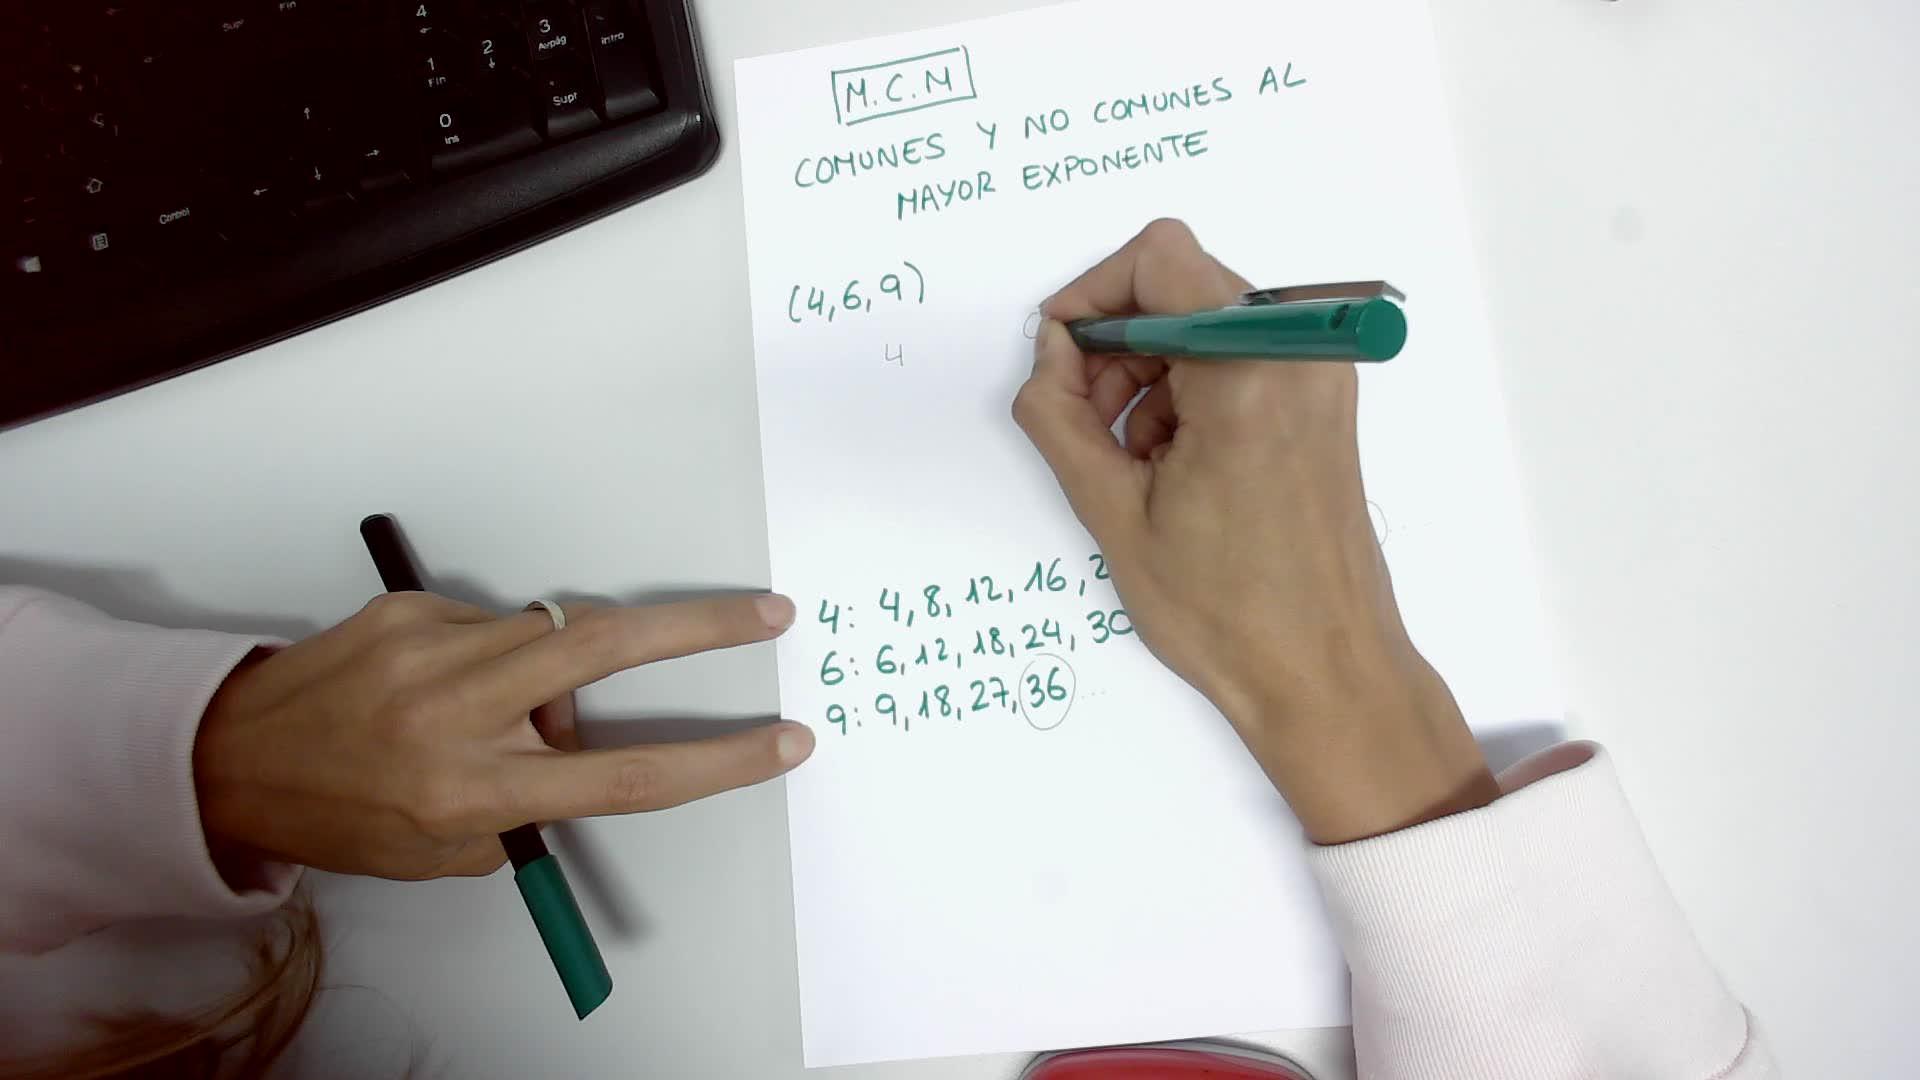 4
←
1
Fin
2
↓
3
AvPág
Intro
0
Ins
.
Supr
Supr
Fin
Ç
↑
←
↓
→
Control
M.C.M
COMUNES Y NO COMUNES AL
MAYOR EXPONENTE
(4,6,9)
4
4: 4, 8, 12, 16, 2
6: 6, 12, 18, 24, 30
9: 9, 18, 27, 36 ...